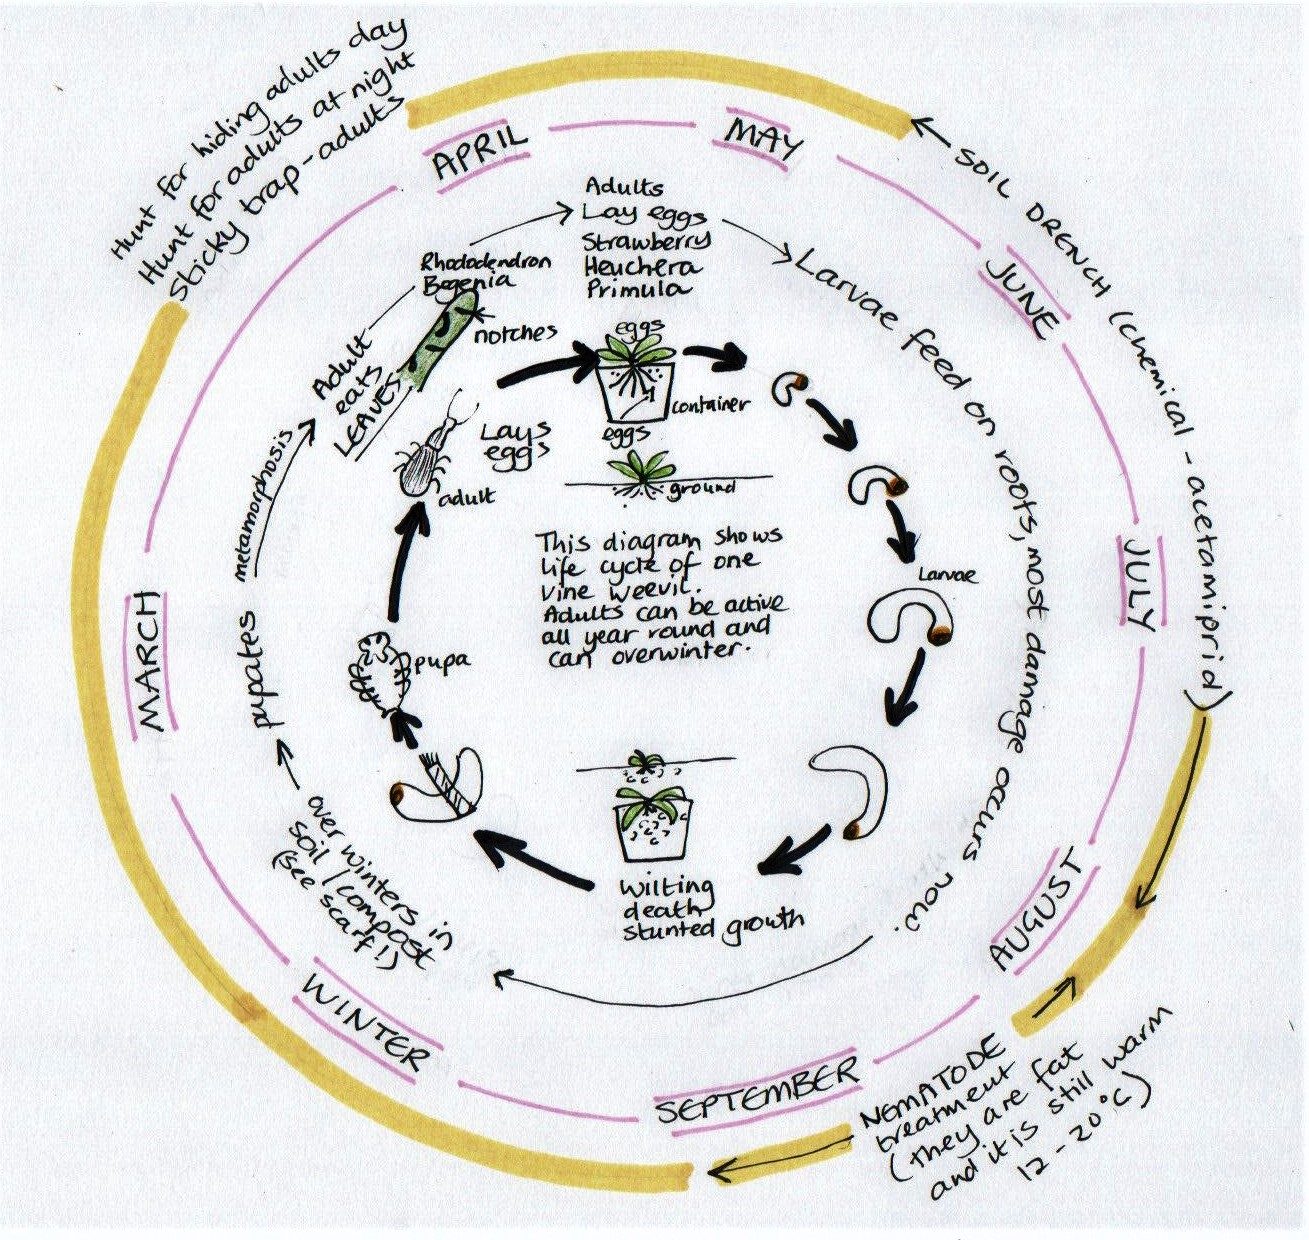 Hunt for hiding adults day
Hunt for adults at night
Sticky trap - adults
APRIL
MAY
JUNE
JULY
AUGUST
SEPTEMBER
WINTER
MARCH
SOIL DRENCH (chemical - acetamiprid)
NEMATODE
treatment
(they are fat
and it is still warm
12 - 20°C)
Adults
Lay eggs
Strawberry
Heuchera
Primula
Larvae feed on roots, most damage occurs now.
over winters in
soil / compost
(see scarf!)
pupates
metamorphosis
Adult
eats
LEAVES
Rhododendron
Begenia
notches
eggs
container
eggs
ground
Lays
eggs
adult
Larvae
pupa
This diagram shows
life cycle of one
vine weevil.
Adults can be active
all year round and
can overwinter.
Wilting
death
stunted growth